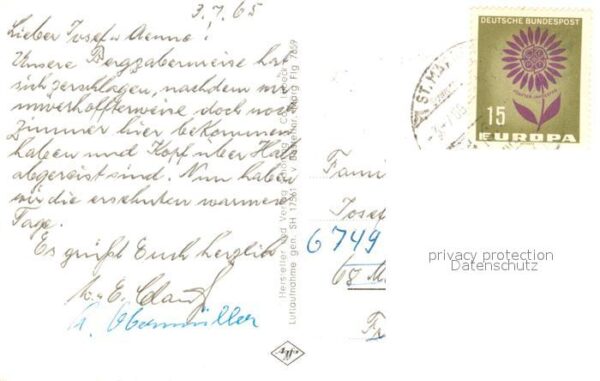 3.7.65
Lieber Josef u Aenne!
Unsere Bergzabernreise hat
sich zerschlagen, nachdem wir
unverhoffterweise doch noch
Zimmer hier bekommen
haben und Kopf über Hals
abgereist sind. Nun haben
wir die ersehnten warmen
Tage.
Es grüßt Euch herzlich
u. E.
Obermüller
Hersteller und Verlag Schöning
Luftaufnahme gen. SH 17561
Agfa
DEUTSCHE BUNDESPOST
15
EUROPA
ST. MA
Fam
Josef
6749
68 M
privacy protection
Datenschutz